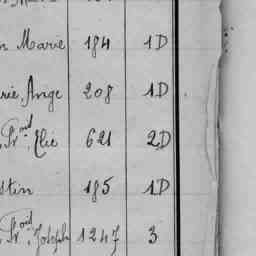 n Marie 184 1D
rie Ange 208 1D
Elie 621 2D
stin 185 1D
Joseph 1247 3